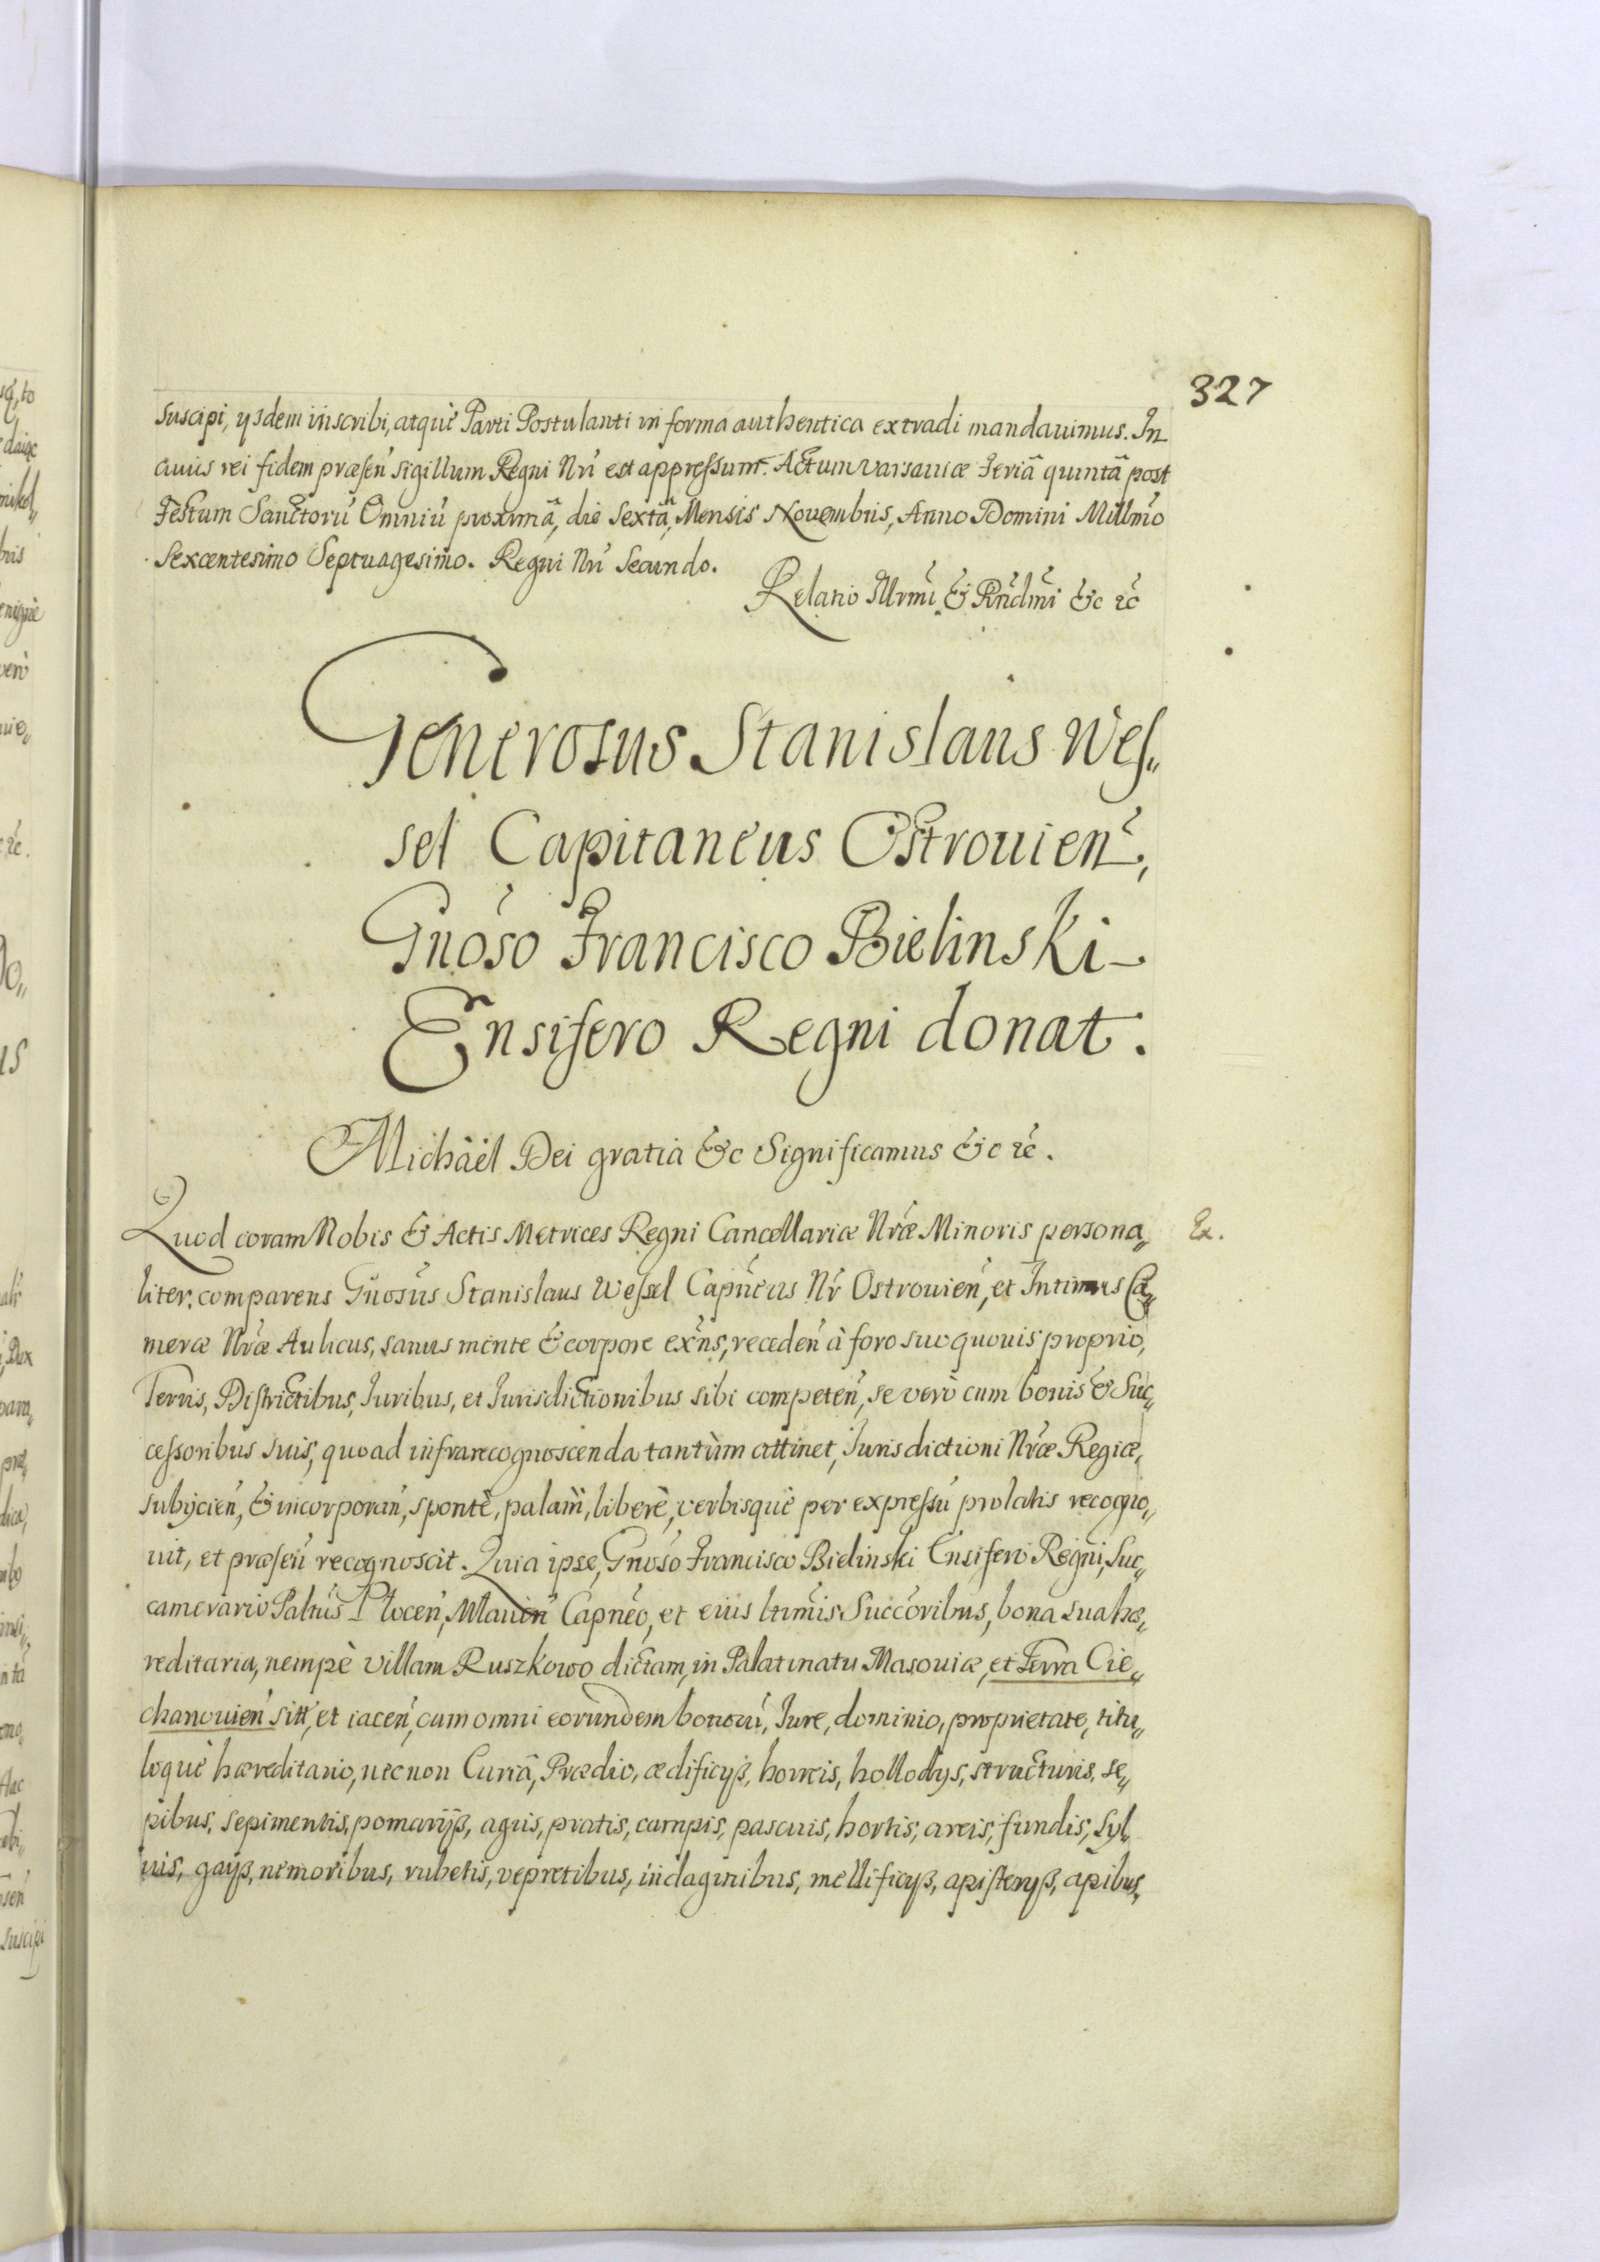 327
suscipi, ysdem inscribi, atquè Parti Postulanti in forma authentica extradi mandauimus. In
cuius rei fidem præsen̄ sigillum Regni Nr̄i est appressum. Actum Varsauiæ Feriâ quintâ post
Festum Sanctorū Omniū proximâ, die Sextâ, Mensis Novembris, Anno Domini Millm̄o
Sexcentesimo Septuagesimo. Regni Nr̄i Secundo.
Relatio Illrm̄i & Rn̄dm̄i &c rc̄
Generosus Stanislaus Wes„
sel Capitaneus Ostrouien̄,
Gnōso Francisco Bielinski
Ensifero Regni donat.
Michäël Dei gratia &c Significamus &c rc̄.
Quod coram Nobis & Actis Metrices Regni Cancellariæ Nrǣ Minoris persona„
Ex.
liter comparens Gn̄osus Stanislaus Wessel Capn̄eus Nr̄ Ostrouien̄, et Intimus Ca„
meræ Nrǣ Aulicus, sanus mente & corpore exn̄s, receden̄ à foro suo quouis proprio,
Terris, Districtibus, Iuribus, et Iurisdictionibus sibi competen̄, se verò cum bonis & Suc„
cessoribus suis, quoad infrarecognoscenda tantùm attinet, Iurisdictioni Nrǣ Regiæ,
subijcien̄, & incorporan̄, spontè, palàm, liberè, verbisquè per expressū prolatis recogno„
uit, et præsen̄ recognoscit. Quia ipse, Gnōso Francisco Bielinski Ensifero Regni, Suc„
camerario Paltūs Plocen̄, Mlauien̄ Capnēo, et eius ltim̄is Succōribus, bona sua hæ„
reditaria, nempè Villam Ruszkowo dictam, in Palatinatu Masouiæ, et Terra Cie„
chanouien̄ sitt̄, et iacen̄, cum omni eorundem bonorū, Iure, dominio, proprietate, titu„
loquè hæreditario, necnon Curiâ, Prædio, ædificyß, horreis, hollodys, structuris, se„
pibus, sepimentis, pomarijß, agris, pratis, campis, pascuis, hortis, areis, fundis, Syl„
uis, gayß, nemoribus, rubetis, vepretibus, indaginibus, mellificyß, apisteryß, apibus,